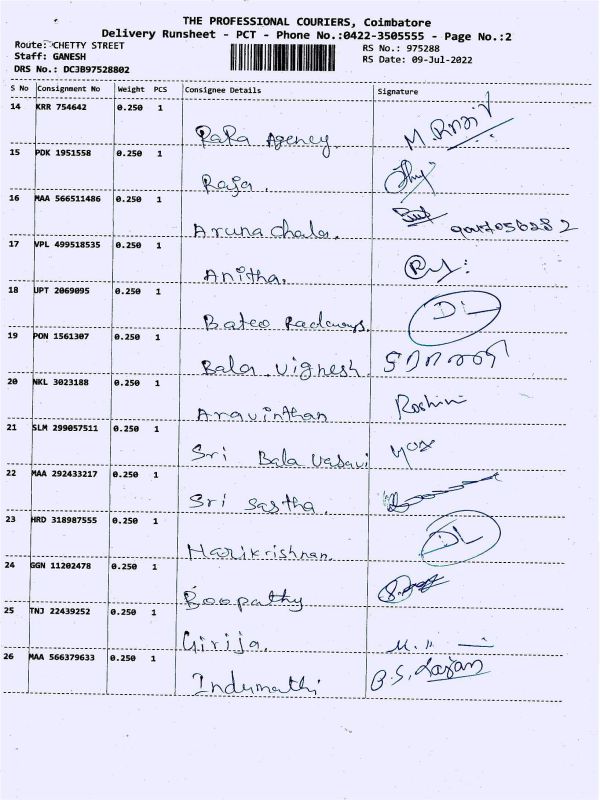 THE PROFESSIONAL COURIERS, Coimbatore
Delivery Runsheet - PCT - Phone No.:0422-3505555 - Page No.:2
Route: CHETTY STREET
Staff: GANESH
DRS No.: DCJB97528802
RS No.: 975288
RS Date: 09-Jul-2022
S No Consignment No Weight PCS Consignee Details Signature
14 KRR 754642 0.250 1
RaRa Agency.
15 PDK 1951558 0.250 1
Raja.
16 MAA 566511486 0.250 1
Aruna Chala.
17 VPL 499518535 0.250 1
Anitha.
18 UPT 2069095 0.250 1
DL
19 PON 1561307 0.250 1
Bala. Vignesh.
20 NKL 3023188 0.250 1
Aravinthan Roshini
21 SLM 299057511 0.250 1
Sri Bala Vasavi
22 MAA 292433217 0.250 1
Sri Sastha.
23 HRD 318987555 0.250 1
Harikrishnan. DL
24 GGN 11202478 0.250 1
Boopathy
25 TNJ 22439252 0.250 1
Girija.
26 MAA 566379633 0.250 1
Indumathi